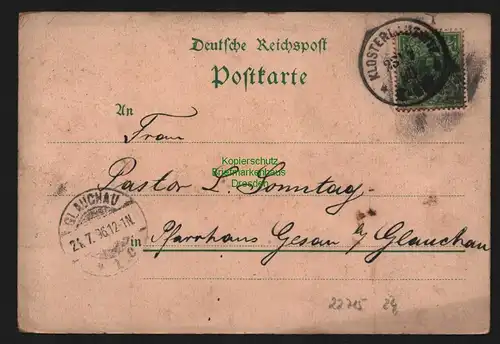 Deutsche Reichspost
Postkarte
KLOSTERLAUSNITZ
An
Frau
Kopierschutz
Briefmarkenhaus
Dresden
Pastor L. Sonntag
GLAUCHAU
24.7.96.12-1N.
1 c
in Pfarrhaus Gesau b/ Glauchau
22715 24